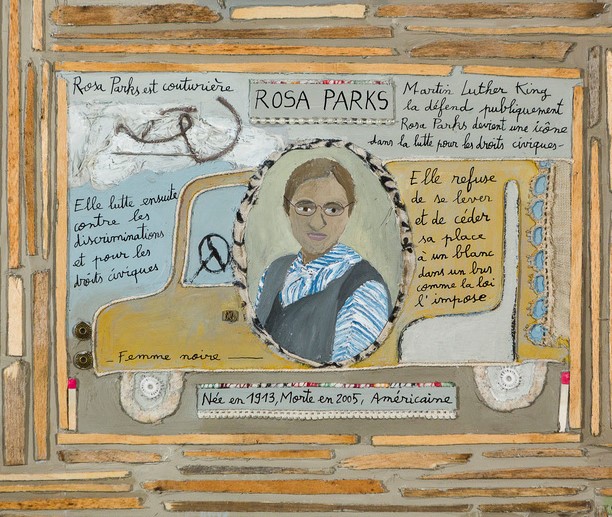 Rosa Parks est couturière
ROSA PARKS
Martin Luther King
la défend publiquement
Rosa Parks devient une icône
dans la lutte pour les droits civiques-
Elle lutte ensuite
contre les
discriminations
et pour les
droits civiques
Elle refuse
de se lever
et de céder
sa place
à un blanc
dans un bus
comme la loi
l'impose
- Femme noire -
Née en 1913, Morte en 2005, Américaine